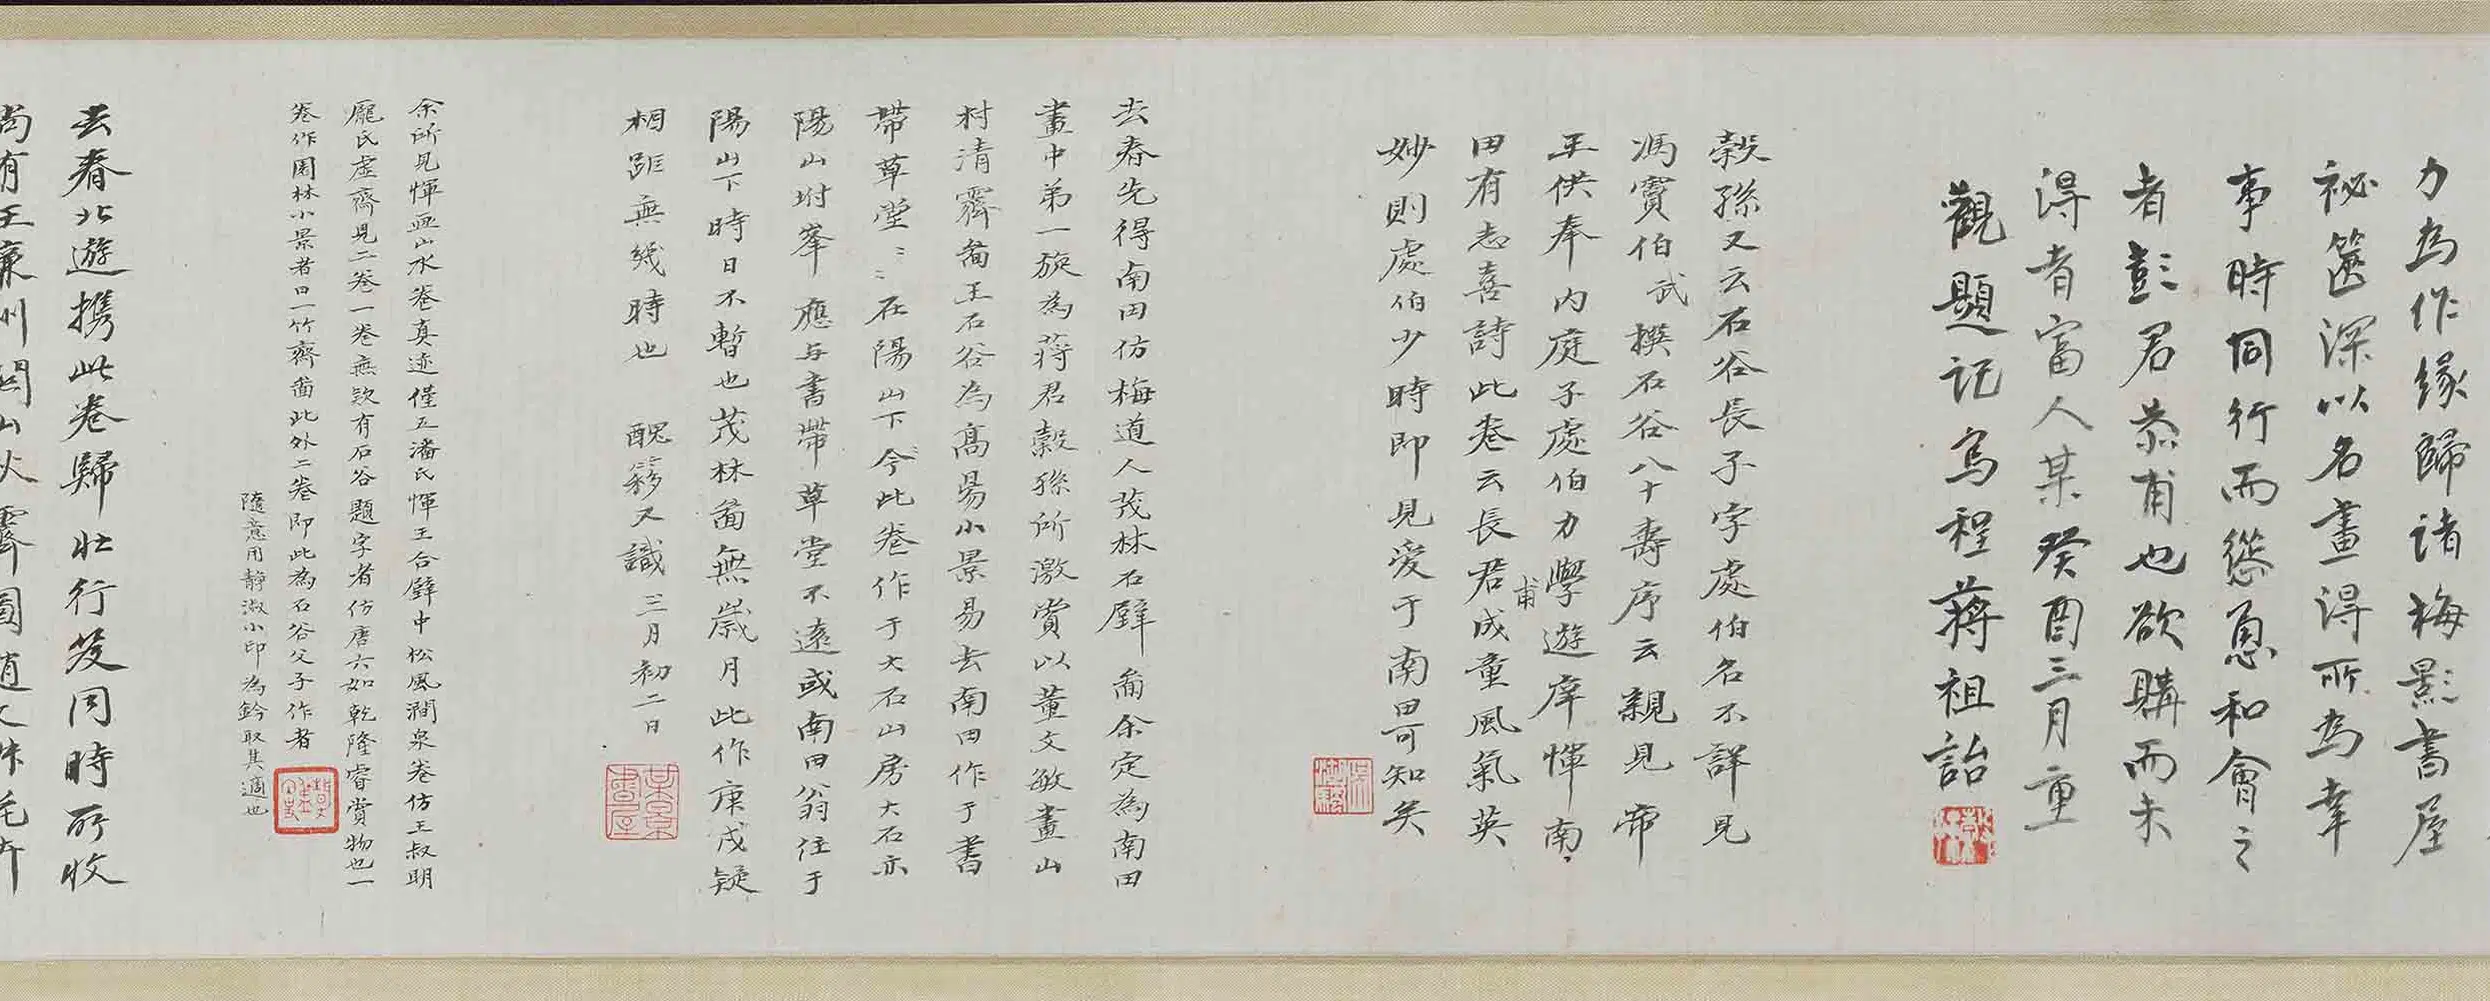 力為作緣歸諸梅影書屋
祕篋深以名畫得所為幸
事時同行而慫恿和會之
者彭君恭甫也欲購而未
得者富人某癸酉三月重
觀題記烏程蔣祖詒
穀孫又云石谷長子字處伯名不詳見
馮寶伯武撰石谷八十壽序云親見帝
王供奉內庭子處伯力學遊庠惲南
田有志喜詩此卷云長君成童風氣英
甫
妙則處伯少時即見愛于南田可知矣
去春先得南田仿梅道人茂林石壁啚余定為南田
畫中弟一旋為蔣君穀孫所激賞以董文敏畫山
村清霽啚王石谷為高昜小景易去南田作于書
帶草堂〻〻在陽山下今此卷作于大石山房大石亦
陽山坿峯應与書帶草堂不遠或南田翁住于
陽山下時日不暫也茂林啚無歲月此作庚戌疑
相距無幾時也 醜簃又識 三月初二日
余所見惲画山水卷真迹僅五潘氏惲王合璧中松風澗泉卷仿王叔明
龐氏虛齋見二卷一卷無欵有石谷題字者仿唐六如乾隆睿賞物也一
卷作園林小景者曰一竹齋啚此外二卷即此為石谷父子作者
隨意用靜淑小印為鈐取其適也
去春北遊攜此卷歸壯行笈同時所收